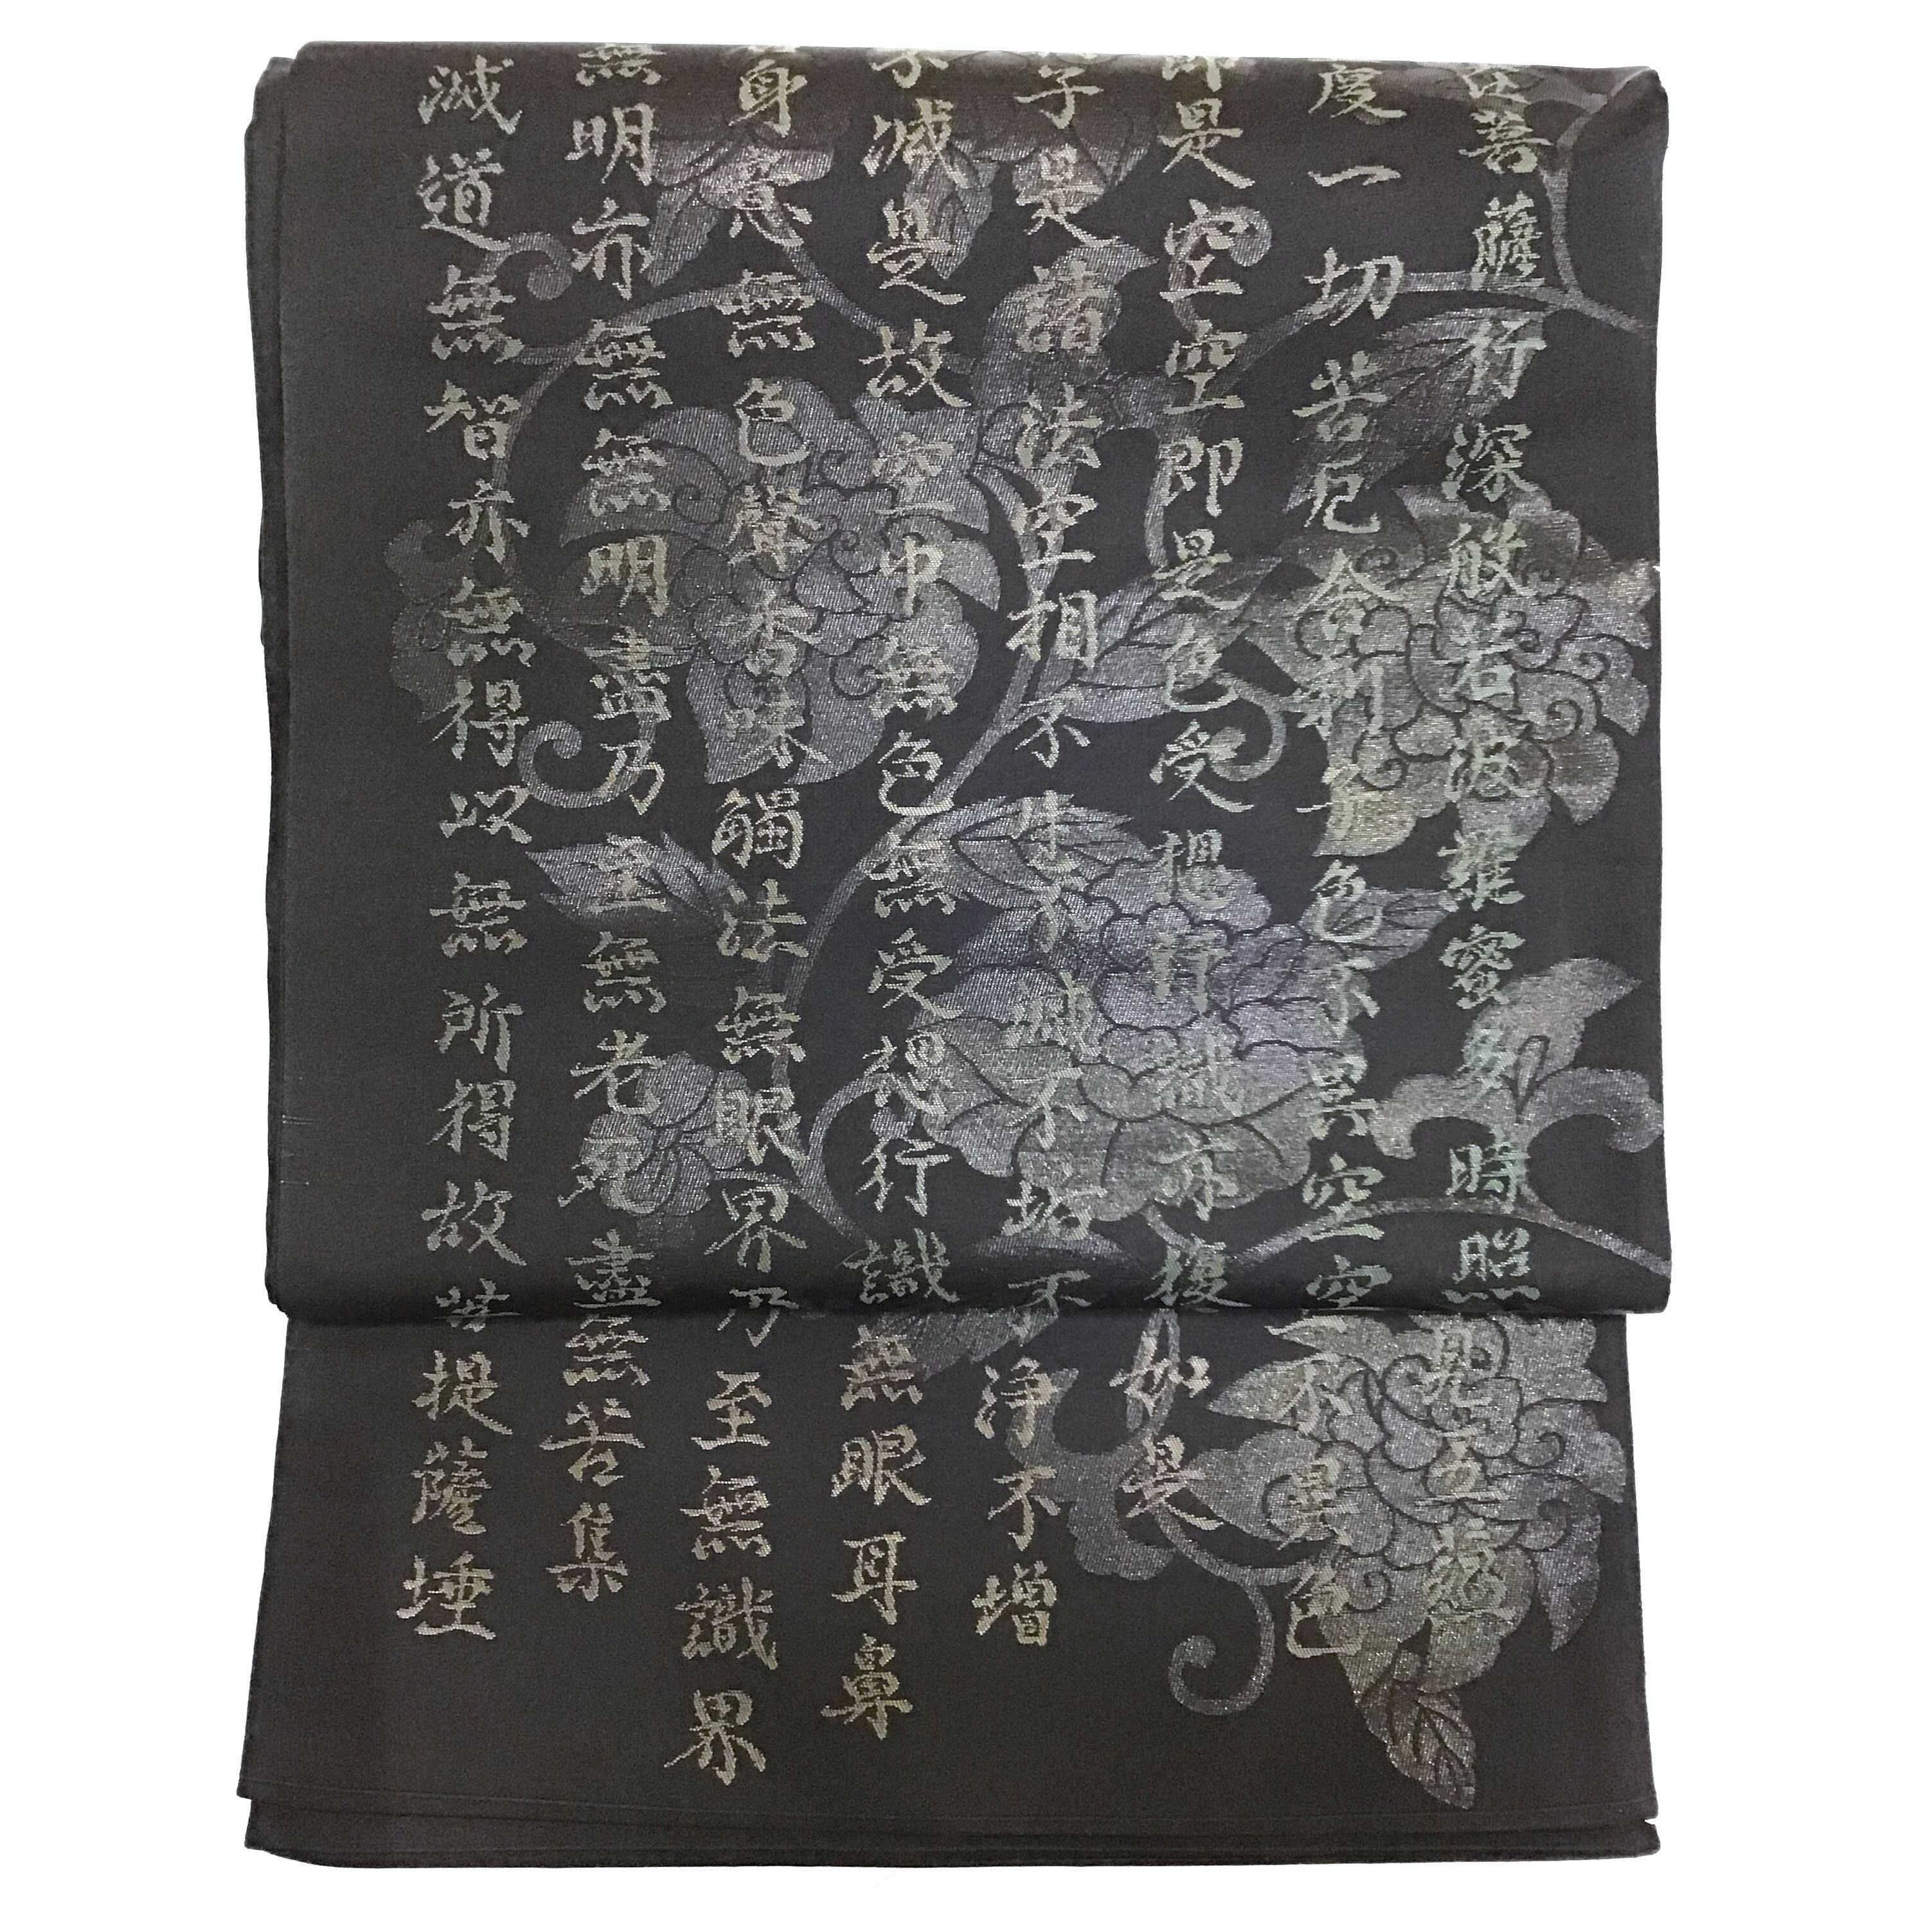 在菩薩行深般若波羅蜜多時照見五蘊
度一切苦厄舎利子色不異空空不異色
即是空空即是色受想行識亦復如是
子是諸法空相不生不滅不垢不浄不増
不減是故空中無色無受想行識無眼耳鼻
身意無色聲香味觸法無眼界乃至無識界
無明亦無無明盡乃至無老死盡無苦集
滅道無智亦無得以無所得故菩提薩埵